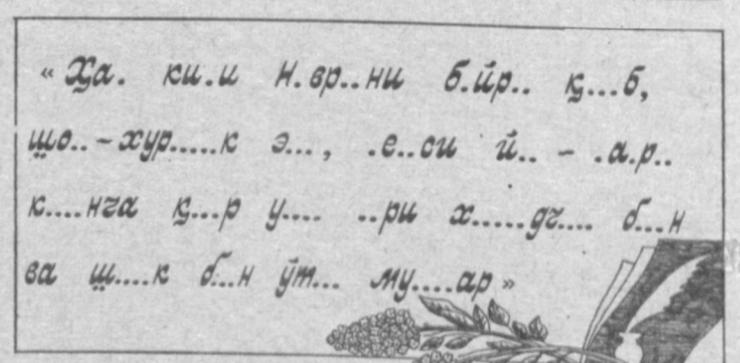 «Ҳа. ки.и н.вр..ни б.йр.. қ...б,
шо..-хур.....к э..., .е..си й.. - .а.р..
к....нча қ...р у.... ..ри х.....дч.... б...н
ва ш....к б..н ўт... му....ар»